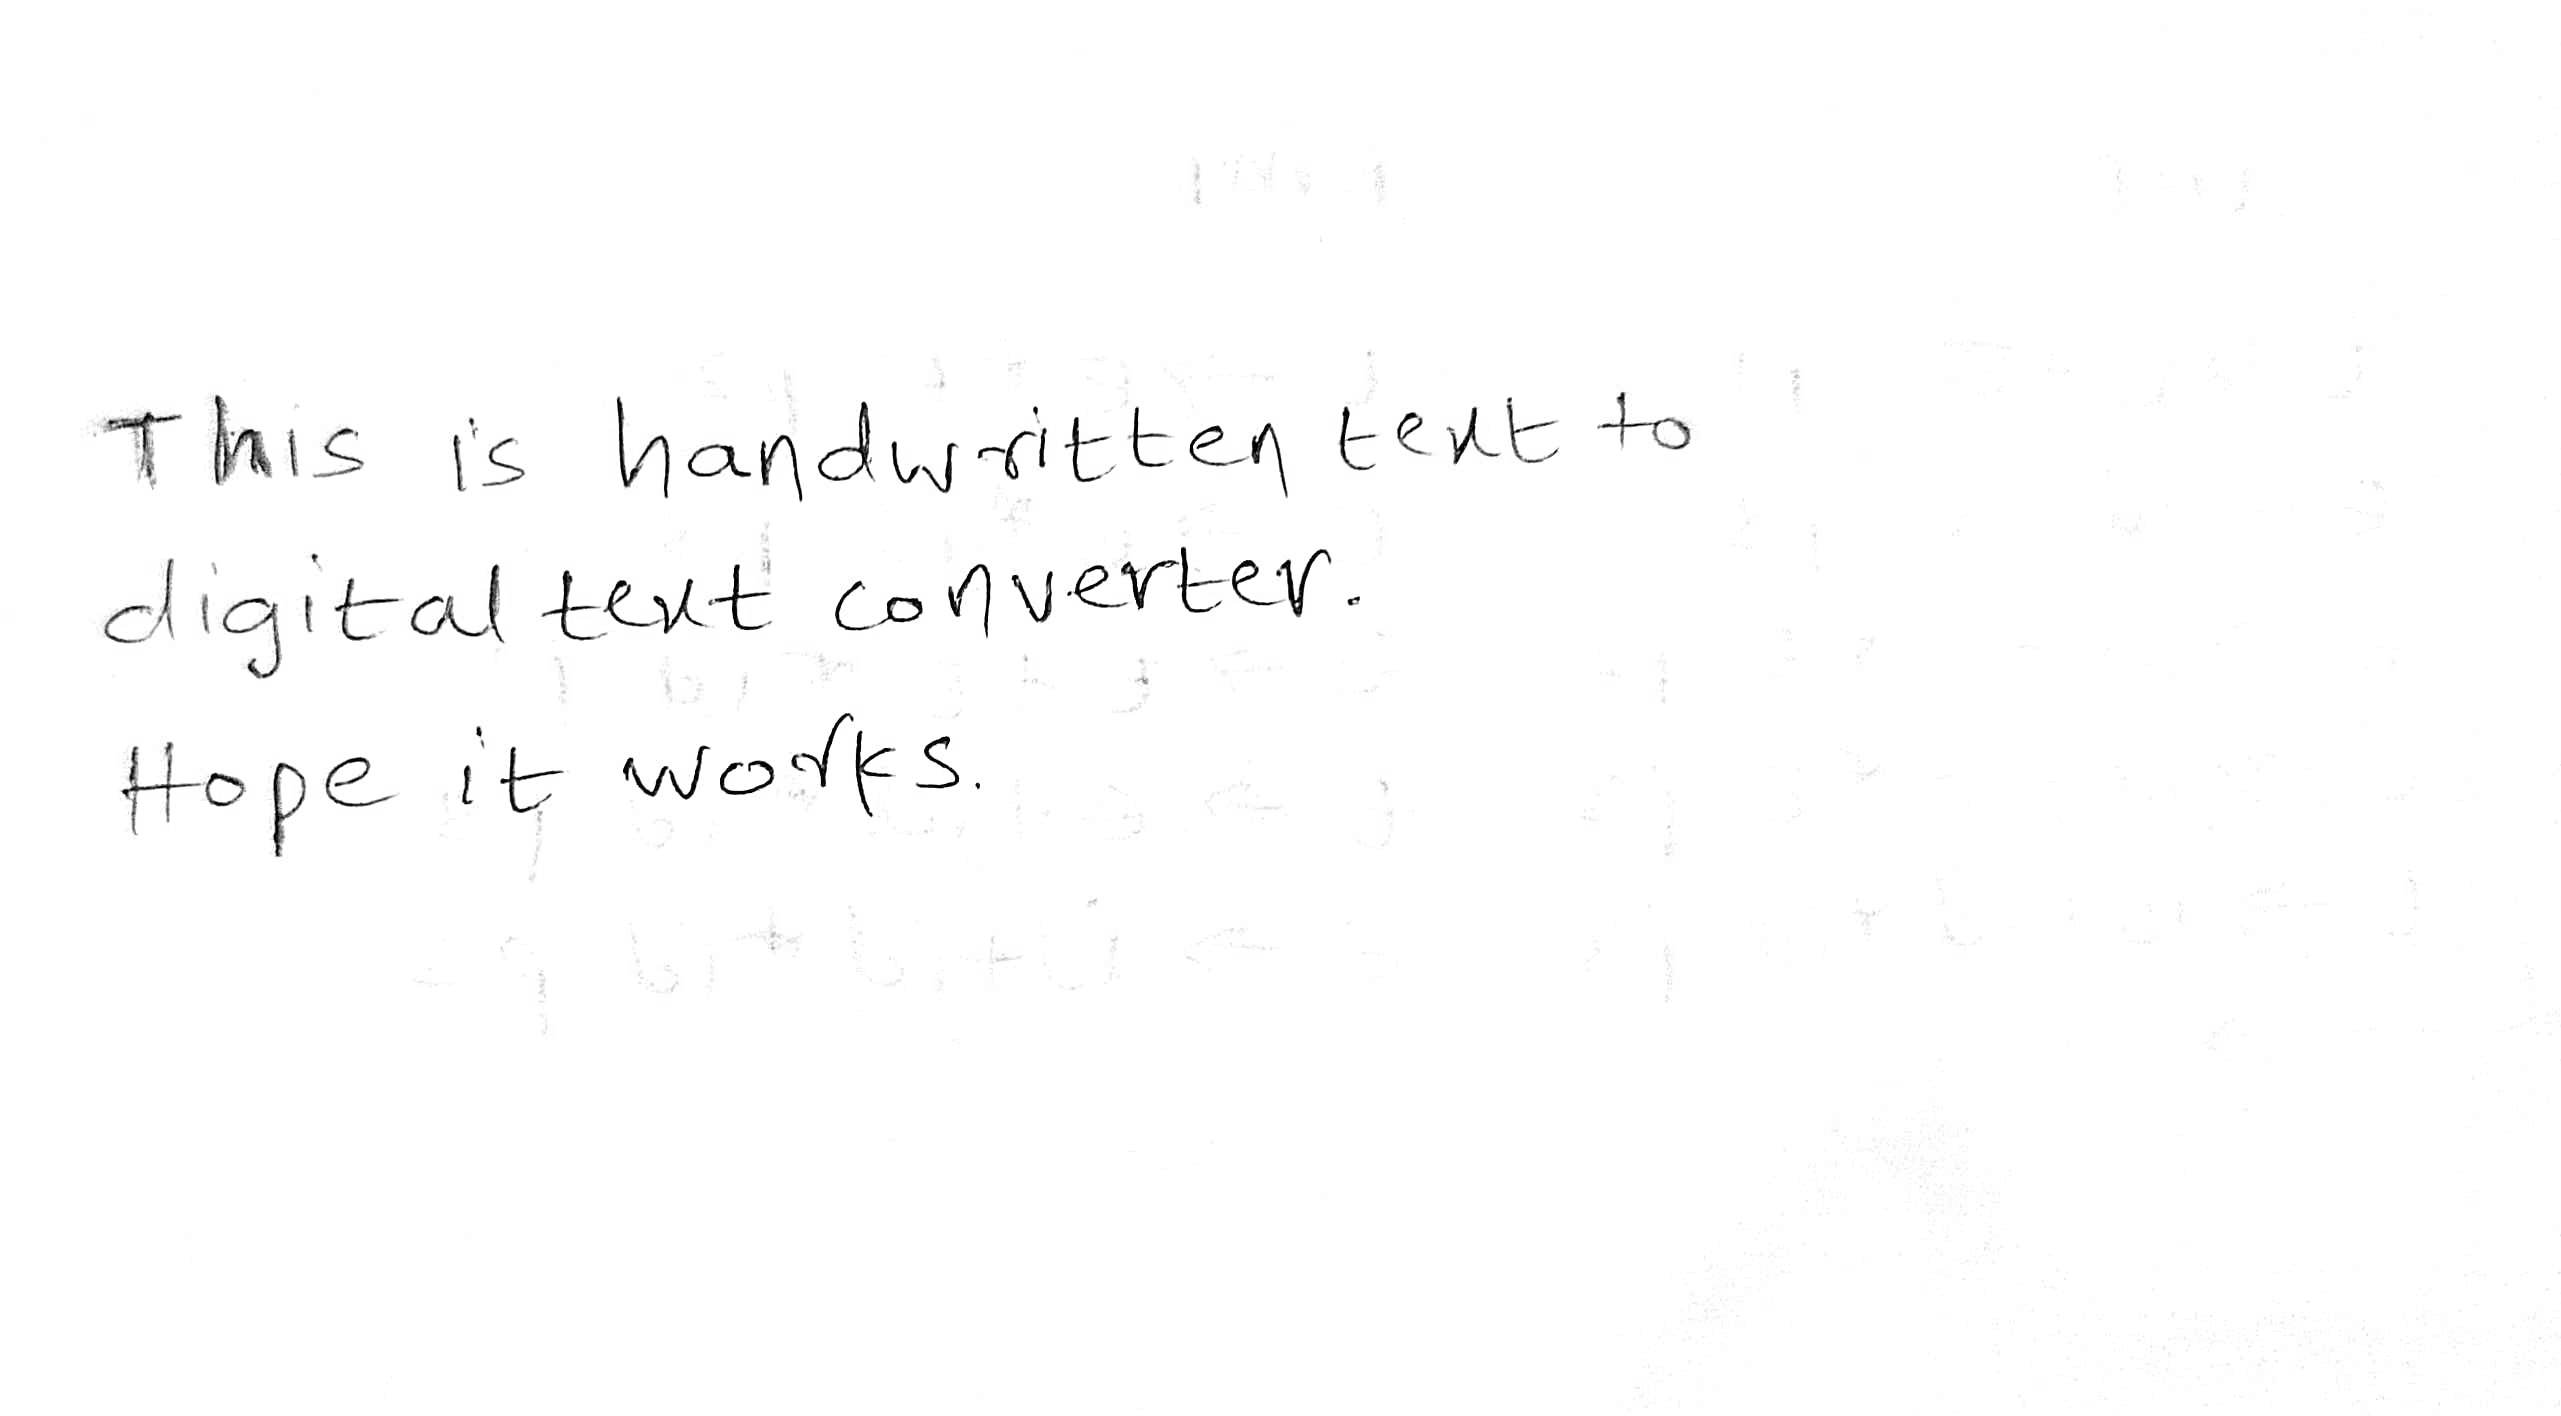 This is handwritten text to
digital text converter.
Hope it works.